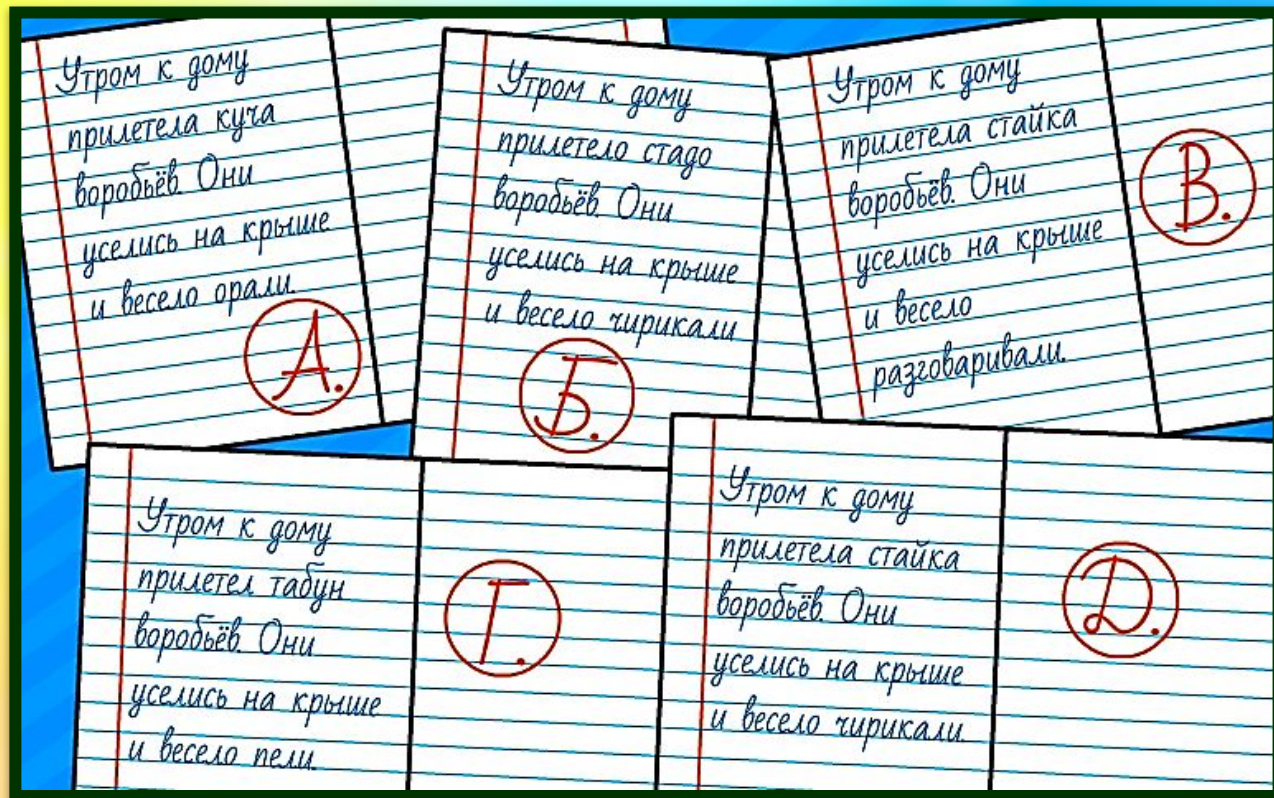 Утром к дому
прилетела куча
воробьёв. Они
уселись на крыше
и весело орали.
А.
Утром к дому
прилетело стадо
воробьёв. Они
уселись на крыше
и весело чирикали
Б.
Утром к дому
прилетела стайка
воробьёв. Они
уселись на крыше
и весело
разговаривали.
В.
Утром к дому
прилетел табун
воробьёв. Они
уселись на крыше
и весело пели.
Г.
Утром к дому
прилетела стайка
воробьёв. Они
уселись на крыше
и весело чирикали.
Д.